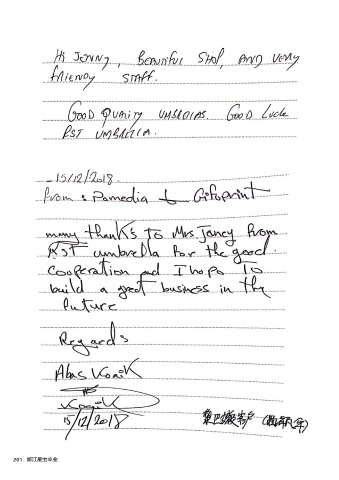 Hi JENNY, BEAUTIFUL SHOP, AND VERY
FRIENDY STAFF.
GOOD QUALITY UMBRELLAS. GOOD Luck
RST UMBRELLA.
15/12/2018.
From : Pomedia + Gifoprint
many thanks to Mrs. Jancy From
RST umbrella For the good
Cooperation and I hope To
build a great business in the
Future
Regards
Abas
15/12/2018
黎巴嫩客户
201 浙江星宝伞业